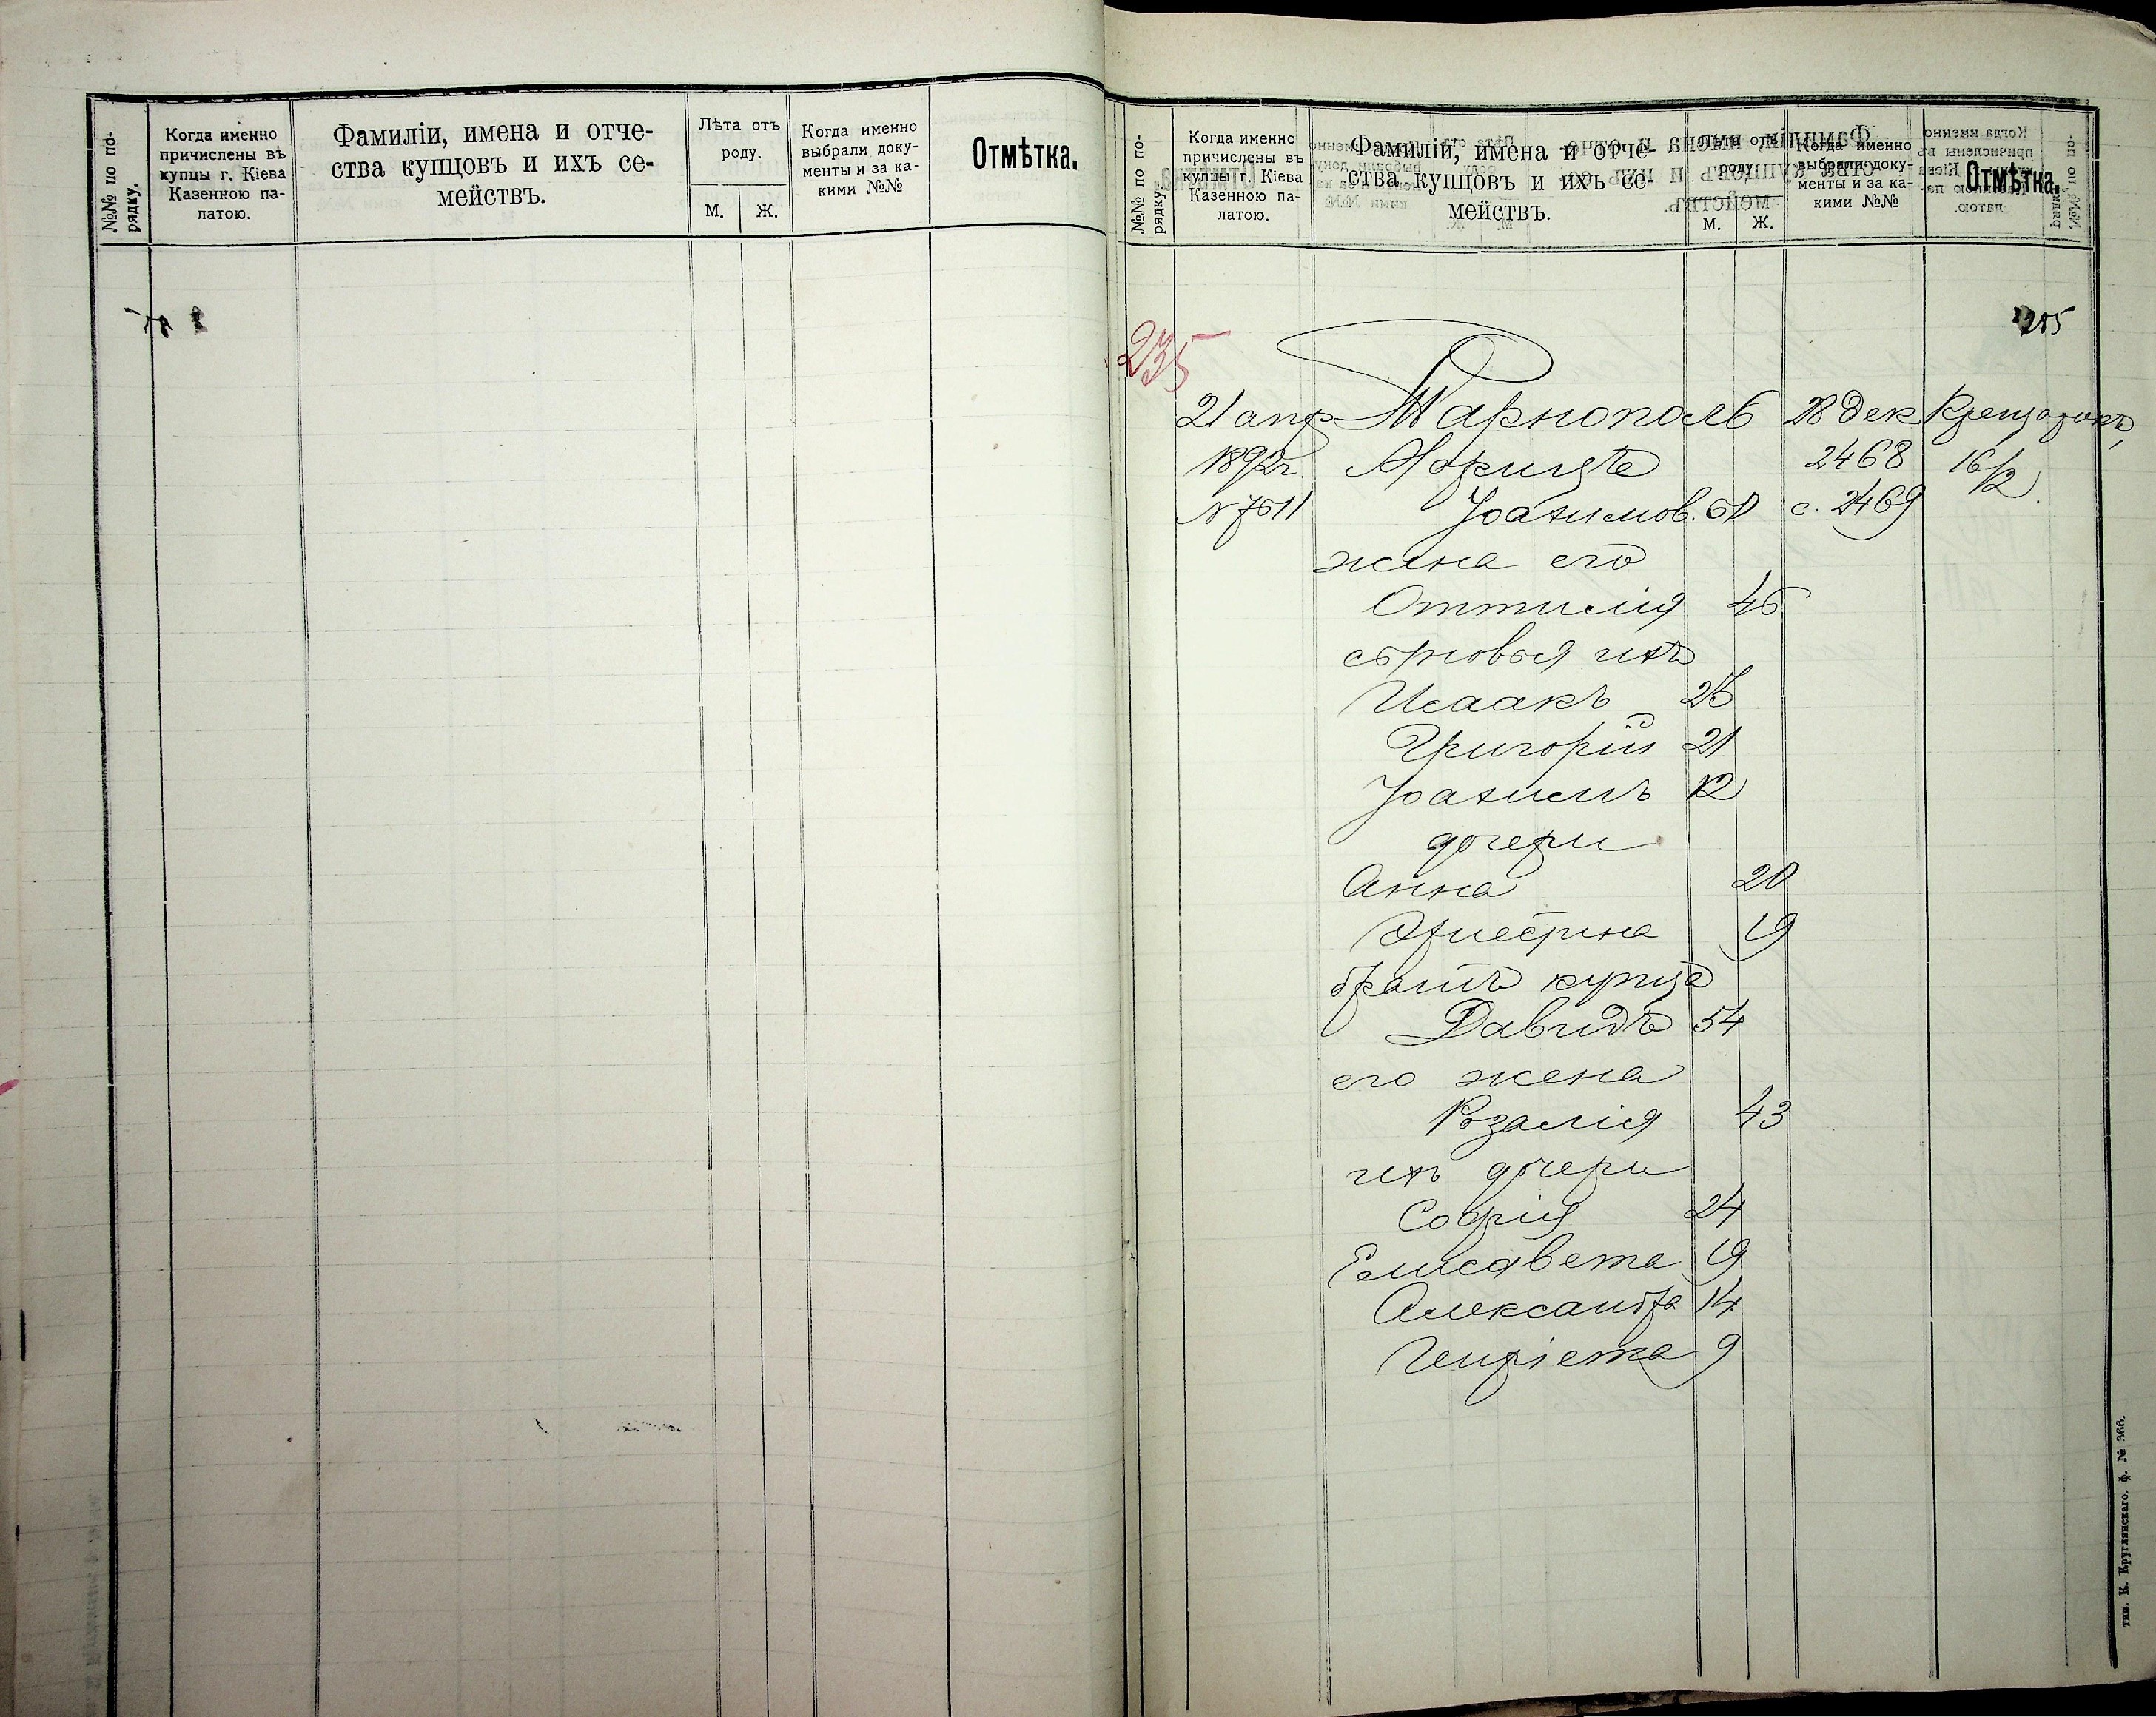 №№ по по-
рядку.
Когда именно
причислены въ
купцы г. Кіева
Казенною па-
латою.
Фамиліи, имена и отче-
ства купцовъ и ихъ се-
мействъ.
Лѣта отъ
роду.
М.
Ж.
Когда именно
выбрали доку-
менты и за ка-
кими №№
Отмѣтка.
№№ по по-
рядку.
Когда именно
причислены въ
купцы г. Кіева
Казенною па-
латою.
Фамиліи, имена и отче-
ства купцовъ и ихъ се-
мействъ.
М.
Ж.
Когда именно
выбрали доку-
менты и за ка-
кими №№
Отмѣтка.
235
215
21 апр Тарнополь 28 дек
1892 г. 2468 16/2
N 7511 Іоахимов. 60 с. 2469
жена его
Оттилія 46
сыновья ихъ
Исаакъ 26
Григорій 21
Іоахимъ 12
дочери
Анна 20
Эрнестина 19
братъ купца
Давидъ 54
его жена
Розалія 43
ихъ дочери
Софія 24
Елисавета 19
Александра 14
Генріета 9
тип. К. Круглянскаго. ф. № 366.